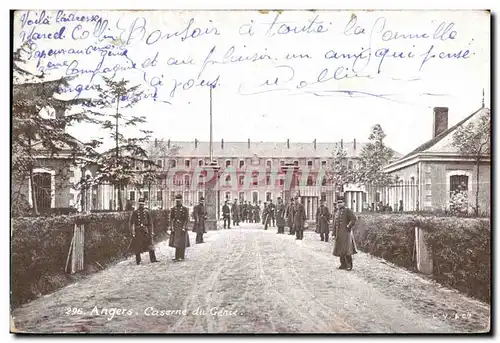 Voilà l'adresse
Marcel Collin
Sapeur au 6eme
Génie
Compagnie
Angers
Bonsoir à toute la famille
et au plaisir. un ami qui pense
à vous.
Collin
296. Angers. Caserne du Génie.